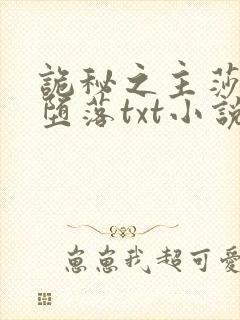 詭秘之主莎
墮落txt小說
崽崽我超可愛